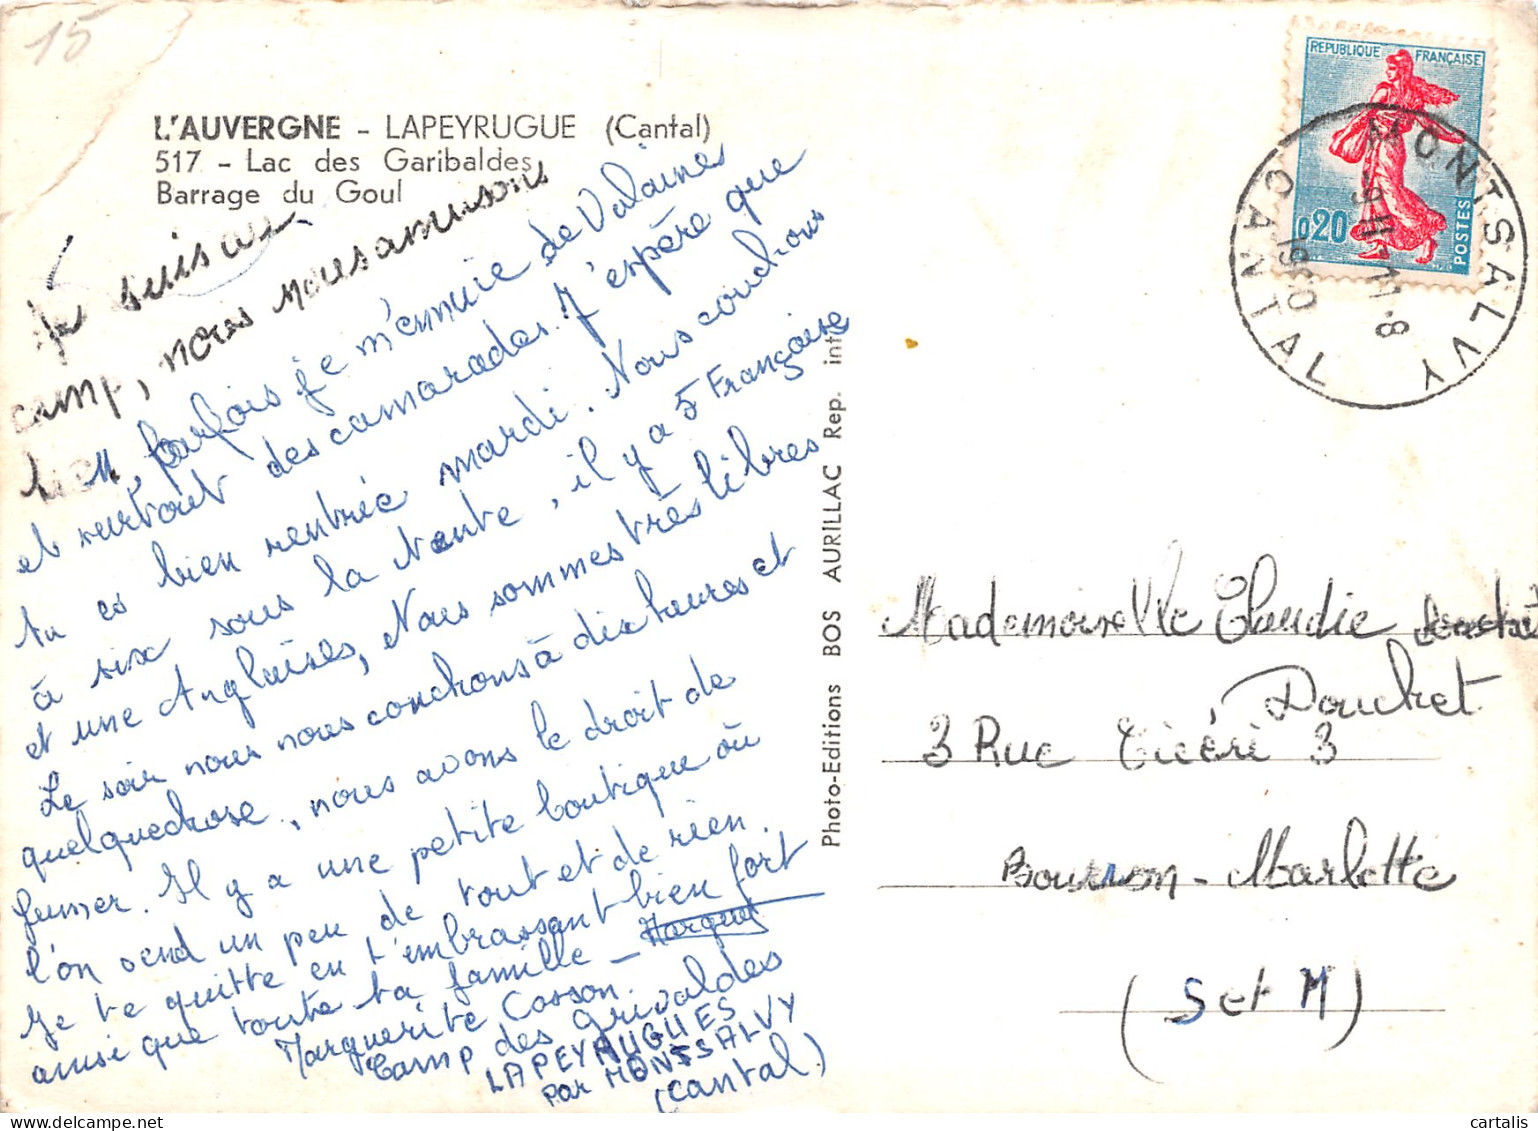 15
L'AUVERGNE - LAPEYRUGUE (Cantal)
517 - Lac des Garibaldes
Barrage du Goul
Je suis au
camp, nous nous amusons
bien, parfois je m'ennuie de Valaines
et surtout des camarades. J'espère que
tu es bien rentrée mardi. Nous couchons
à six sous la tente, il y a 5 Française
et une Anglaises, Nous sommes très libres
Le soir nous nous couchons à dix heures et
quelquechose, nous avons le droit de
fumer. Il y a une petite boutique où
l'on vend un peu de tout et de rien.
Je te quitte en t'embrassant bien fort
ainsi que toute ta famille -
Marguerite Cosson.
Camp des Grivaldes
LAPEYRUGUES
par MONTSALVY
(Cantal)
Photo-Editions BOS AURILLAC Rep. int.
REPUBLIQUE FRANÇAISE
0,20
POSTES
MONTSALVY
CANTAL
1960
Mademoiselle Claudie
Douchet
3 Rue Cicéri 3
Bourron-Marlotte
(S et M)
cartalis
delcampe.net